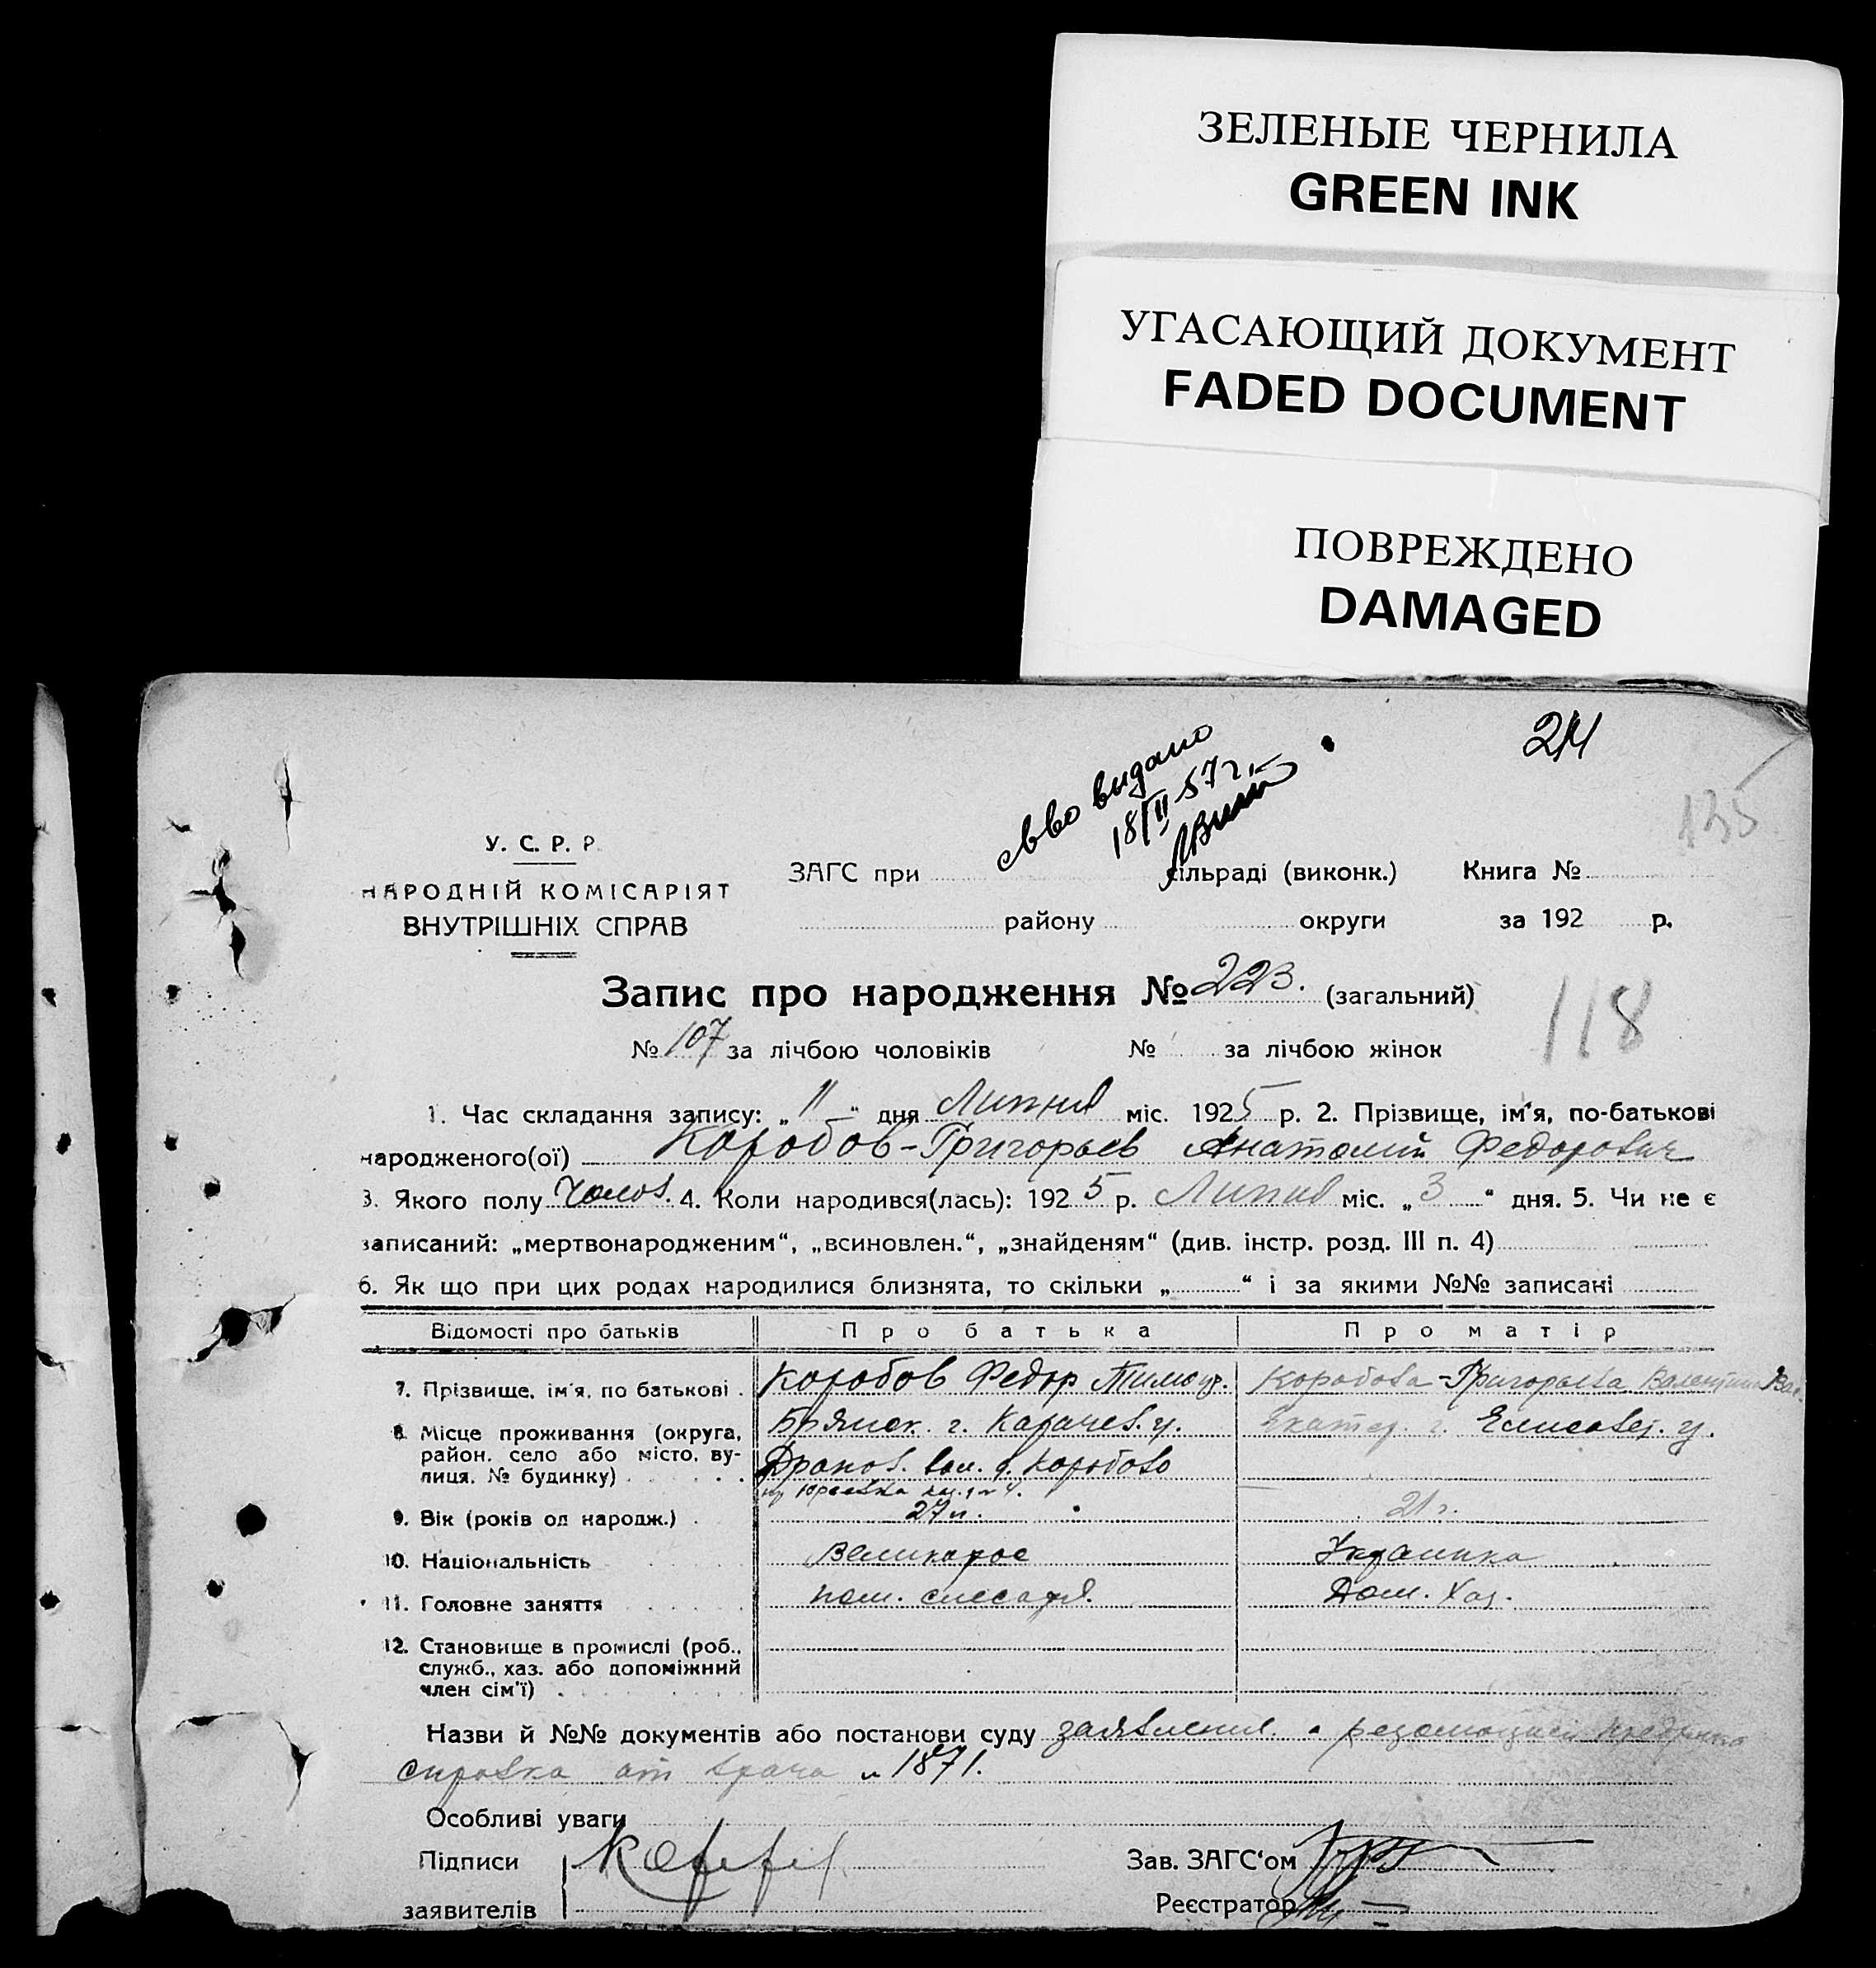 ЗЕЛЕНЫЕ ЧЕРНИЛА
GREEN INK
УГАСАЮЩИЙ ДОКУМЕНТ
FADED DOCUMENT
ПОВРЕЖДЕНО
DAMAGED
24
135
св-во видано
18/II 57 г.
У. С. Р. Р.
НАРОДНІЙ КОМІСАРІЯТ
ВНУТРІШНІХ СПРАВ
ЗАГС при сільраді (виконк.) Книга №
району округи за 192 р.
Запис про народження № 223. (загальний)
118
№ 107 за лічбою чоловіків № за лічбою жінок
1. Час складання запису: „11“ дня Липня міс. 1925 р. 2. Прізвище, ім'я, по-батькові
народженого(ої) Коробов-Григорьев Анатолий Федорович
3. Якого полу Чолов. 4. Коли народився(лась): 1925 р. Липня міс. „3“ дня. 5. Чи не є
записаний: „мертвонародженим“, „всиновлен.“, „знайденям“ (див. інстр. розд. III п. 4)
6. Як що при цих родах народилися близнята, то скільки „ “ і за якими №№ записані
Відомості про батьків Про батька Про матір
7. Прізвище, ім'я, по батькові . Коробов Федор Тимоф. Коробова-Григорьева Валентина Вас.
8. Місце проживання (округа, Брянск. г. Карачев. у. Екатер. г. Елисавет. у.
район, село або місто, ву- Дронов. вол. д. Коробово
лиця, № будинку)
9. Вік (років од народж.) 27 л. 21 г.
10. Національність Великорос Украинка
11. Головне заняття пом. слесаря. Дом. Хоз.
12. Становище в промислі (роб.,
служб., хаз. або допоміжний
член сім'ї)
Назви й №№ документів або постанови суду заявления с резолюцией
справка от врача № 1871.
Особливі уваги
Підписи Зав. ЗАГС'ом
заявителів Реєстратор